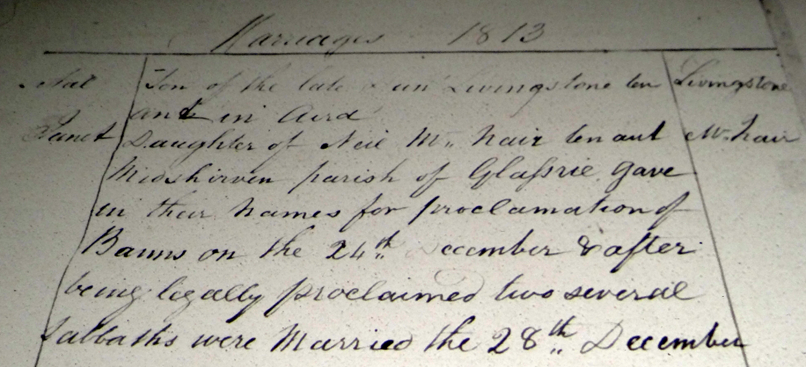 Marriages 1813
Son of the late Livingstone ten Livingstone
ant in Aird
Janet Daughter of Neil Mc Nair tenant McNair
Midshirven parish of Glassrie gave
in their names for proclamation of
Banns on the 24th December & after
being legally proclaimed two several
Sabbaths were Married the 28th December